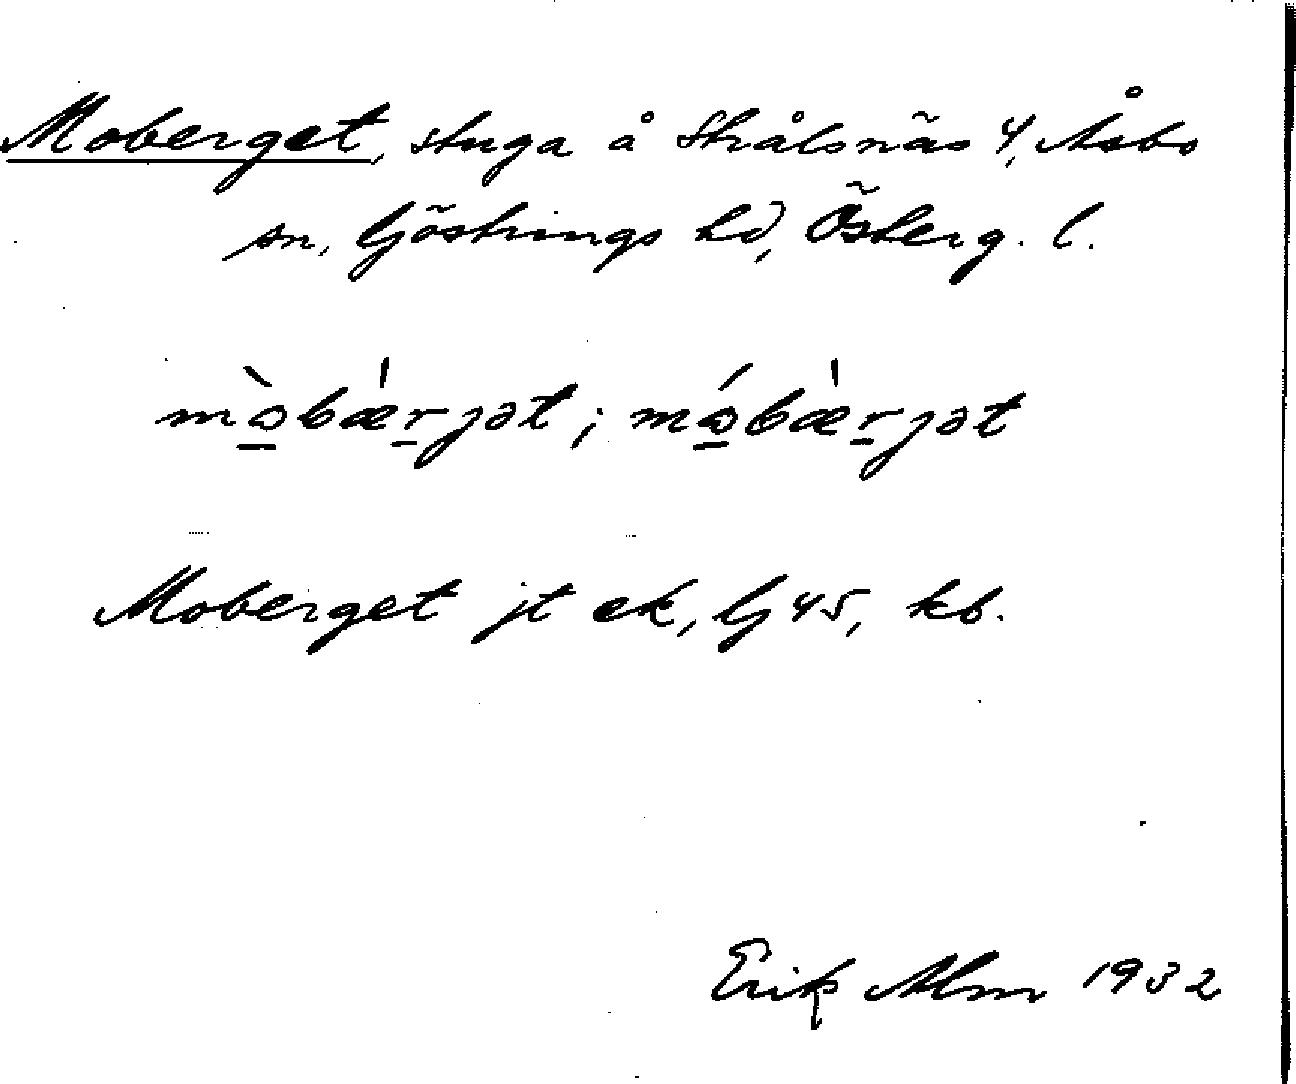 Moberget, stuga å Strålsnäs 4, Åsbo
sn, Göstrings hd, Österg. l.
mò̱bæ̍ṟjət; mó̱bæ̍ṟjət
Moberget jt ek, Gj 45, kb.
Erik Alm 1932